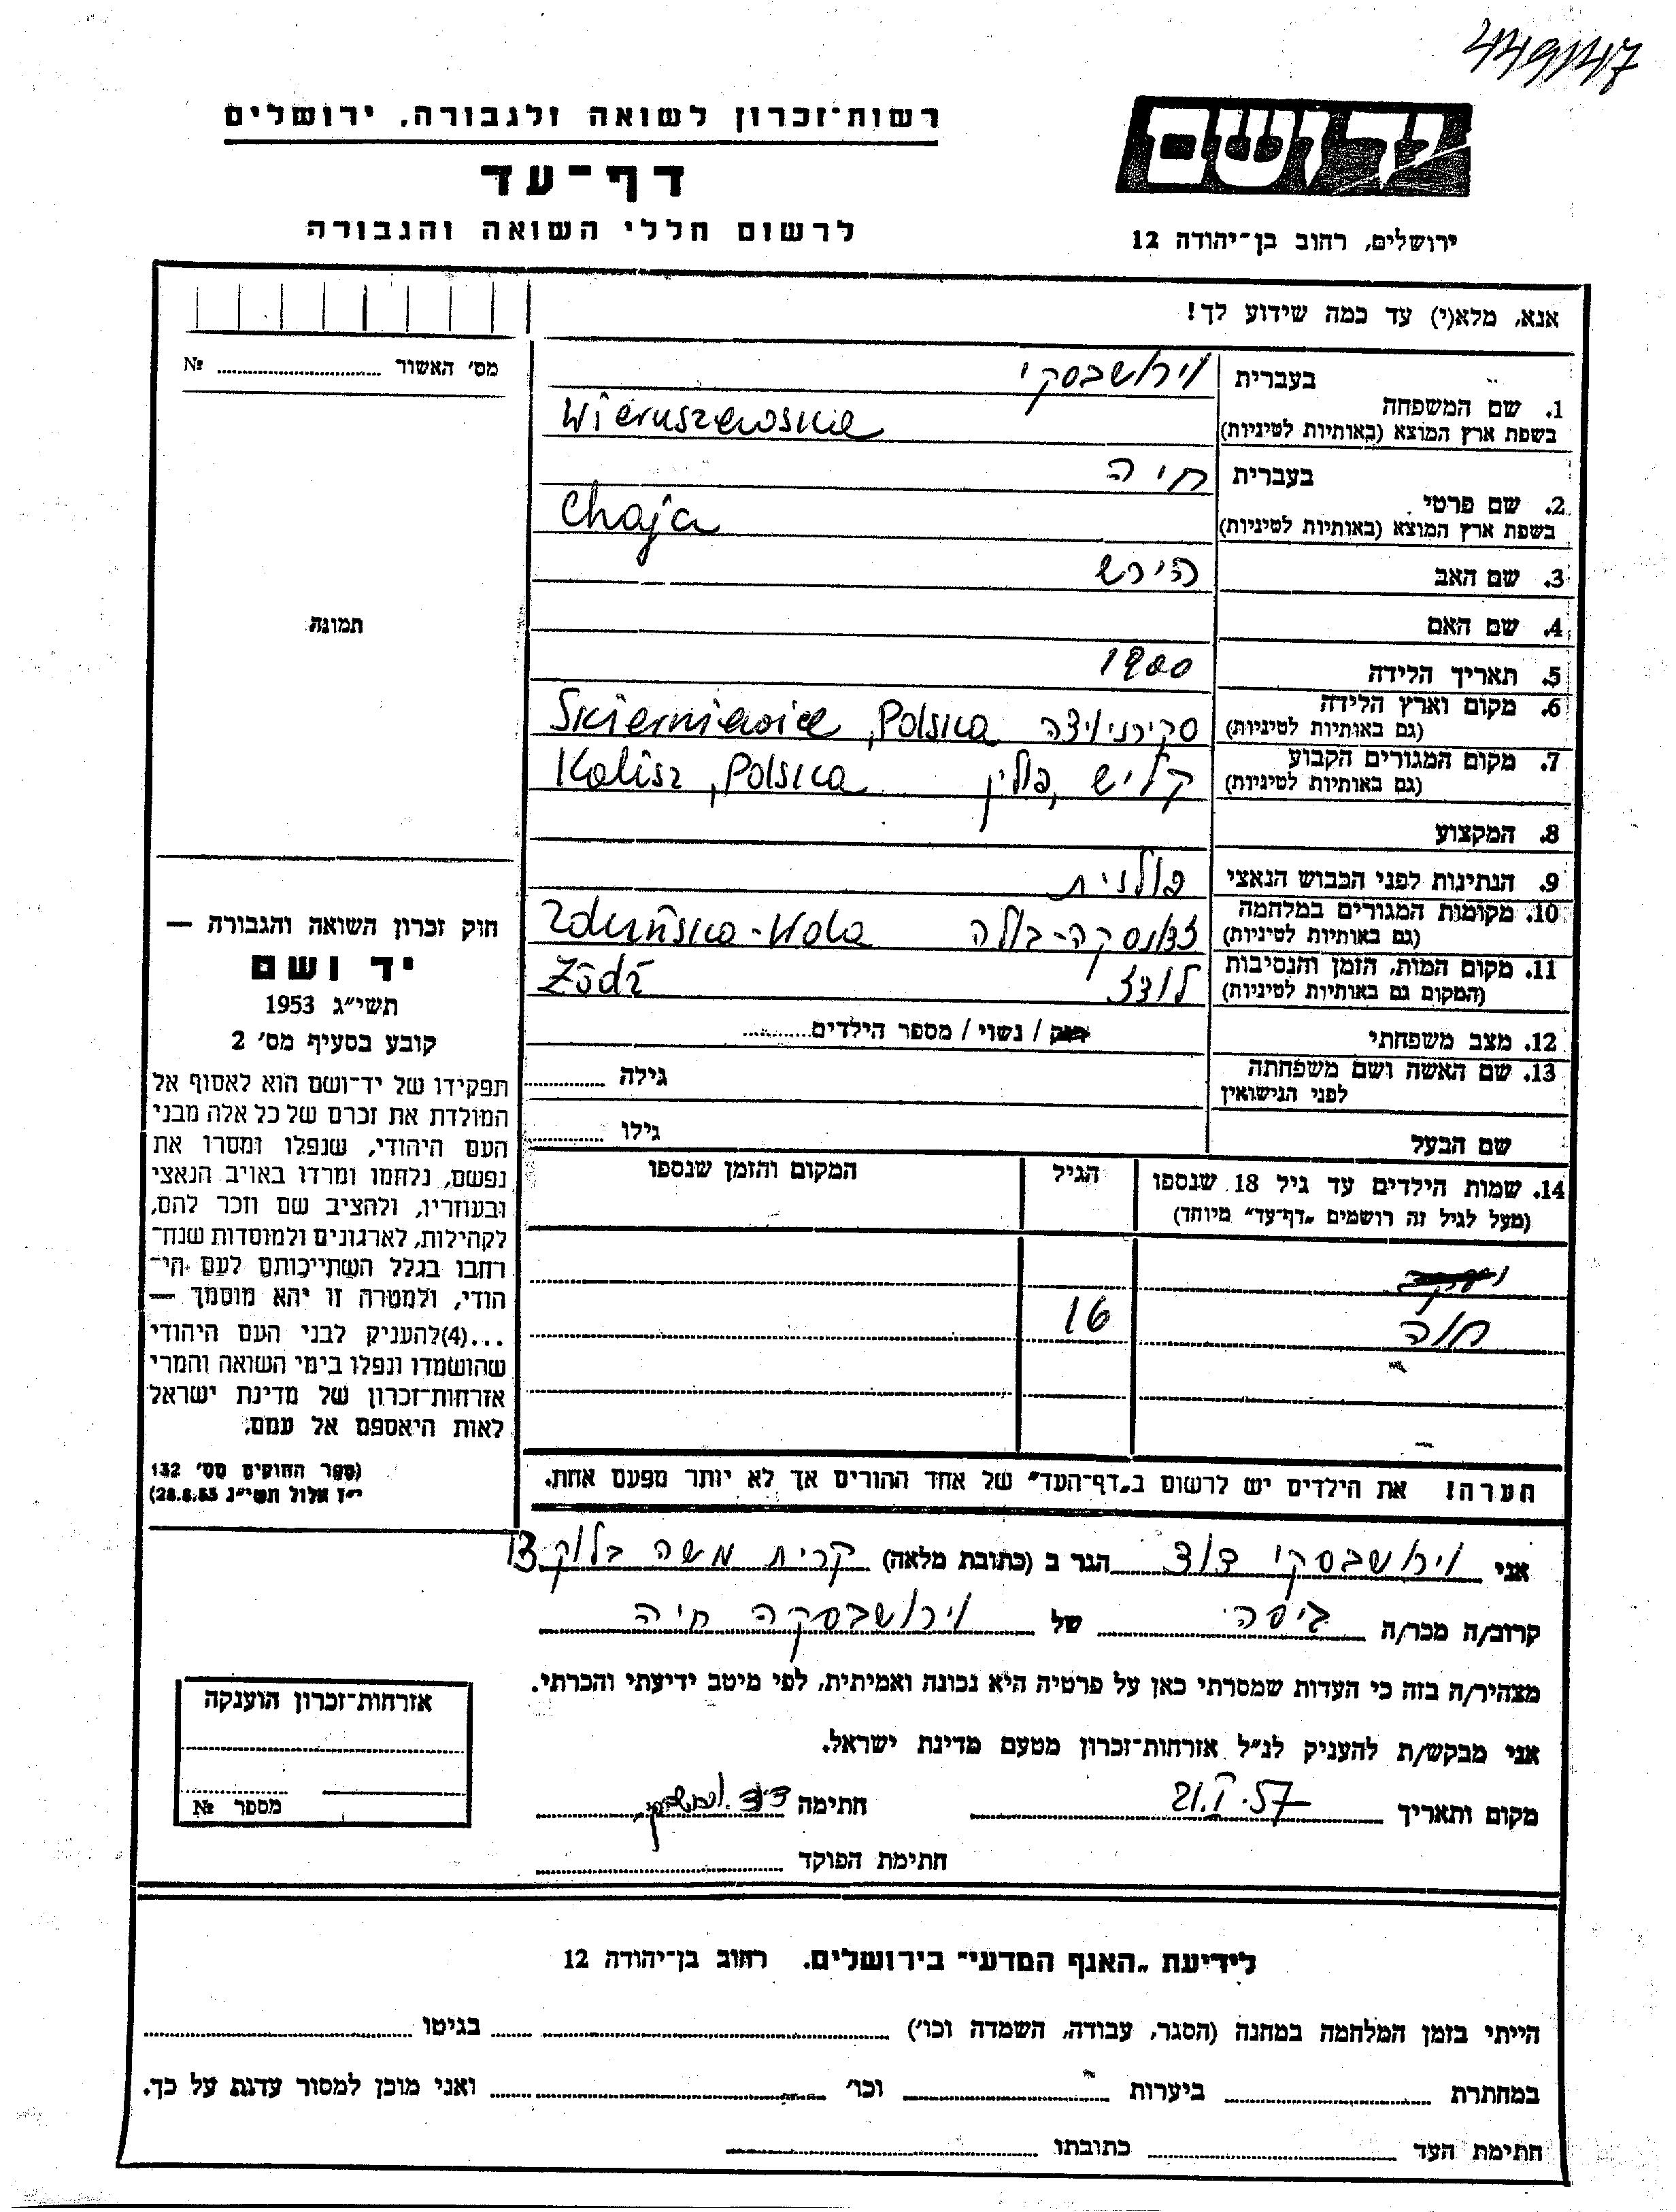 449/47
רשות־זכרון לשואה ולגבורה, ירושלים
דף־עד
לרשום חללי השואה והגבורה
יד ושם
ירושלים, רחוב בן־יהודה 12
אנא, מלא(י) עד כמה שידוע לך!
מס׳ האשור № ........
בעברית וירושבסקי
1. שם המשפחה
בשפת ארץ המוצא (באותיות לטיניות) Wieruszewska
בעברית חיה
2. שם פרטי
בשפת ארץ המוצא (באותיות לטיניות) Chaja
3. שם האב הירש
4. שם האם
תמונה
5. תאריך הלידה 1900
6. מקום וארץ הלידה
(גם באותיות לטיניות) סקירניויצה Skierniewice, Polska
7. מקום המגורים הקבוע
(גם באותיות לטיניות) קליש, פולין Kalisz, Polska
8. המקצוע
9. הנתינות לפני הכבוש הנאצי פולנית
10. מקומות המגורים במלחמה
(גם באותיות לטיניות) זדונסקה-וולה Zduńska-Wola
11. מקום המות, הזמן והנסיבות
(המקום גם באותיות לטיניות) לודז Łódź
12. מצב משפחתי רוק / נשוי / מספר הילדים........
13. שם האשה ושם משפחתה
לפני הנישואין גילה ........
שם הבעל גילו ........
14. שמות הילדים עד גיל 18 שנספו הגיל המקום והזמן שנספו
(מעל לגיל זה רושמים „דף־עד״ מיוחד)
חוה 16
הערה! את הילדים יש לרשום ב„דף־העד״ של אחד ההורים אך לא יותר מפעם אחת.
חוק זכרון השואה והגבורה —
יד ושם
תשי״ג 1953
קובע בסעיף מס׳ 2
תפקידו של יד־ושם הוא לאסוף אל
המולדת את זכרם של כל אלה מבני
העם היהודי, שנפלו ומסרו את
נפשם, נלחמו ומרדו באויב הנאצי
ובעוזריו, ולהציב שם וזכר להם,
לקהילות, לארגונים ולמוסדות שנח־
רחבו בגלל השתייכותם לעם הי־
הודי, ולמטרה זו יהא מוסמך —
...(4)להעניק לבני העם היהודי
שהושמדו ונפלו בימי השואה והמרי
אזרחות־זכרון של מדינת ישראל
לאות היאספם אל עמם.
(ספר החוקים מס׳ 132
י״ז אלול תשי״ג 28.8.53)
אני וירושבסקי דוד הגר ב (כתובת מלאה) קרית משה בלוק 13
קרוב/ה מכר/ה גיסה של וירושבסקה חיה
מצהיר/ה בזה כי העדות שמסרתי כאן על פרטיה היא נכונה ואמיתית, לפי מיטב ידיעתי והכרתי.
אני מבקש/ת להעניק לנ״ל אזרחות־זכרון מטעם מדינת ישראל.
מקום ותאריך 21.I.57 חתימה דוד וירושבסקי
חתימת הפוקד
אזרחות־זכרון הוענקה
מספר №
לידיעת „האגף המדעי״ בירושלים. רחוב בן־יהודה 12
הייתי בזמן המלחמה במחנה (הסגר, עבודה, השמדה וכו׳) ........ בגיטו ........
במחתרת ........ ביערות ........ וכו׳ ........ ואני מוכן למסור עדות על כך.
חתימת העד ........ כתובתו ........